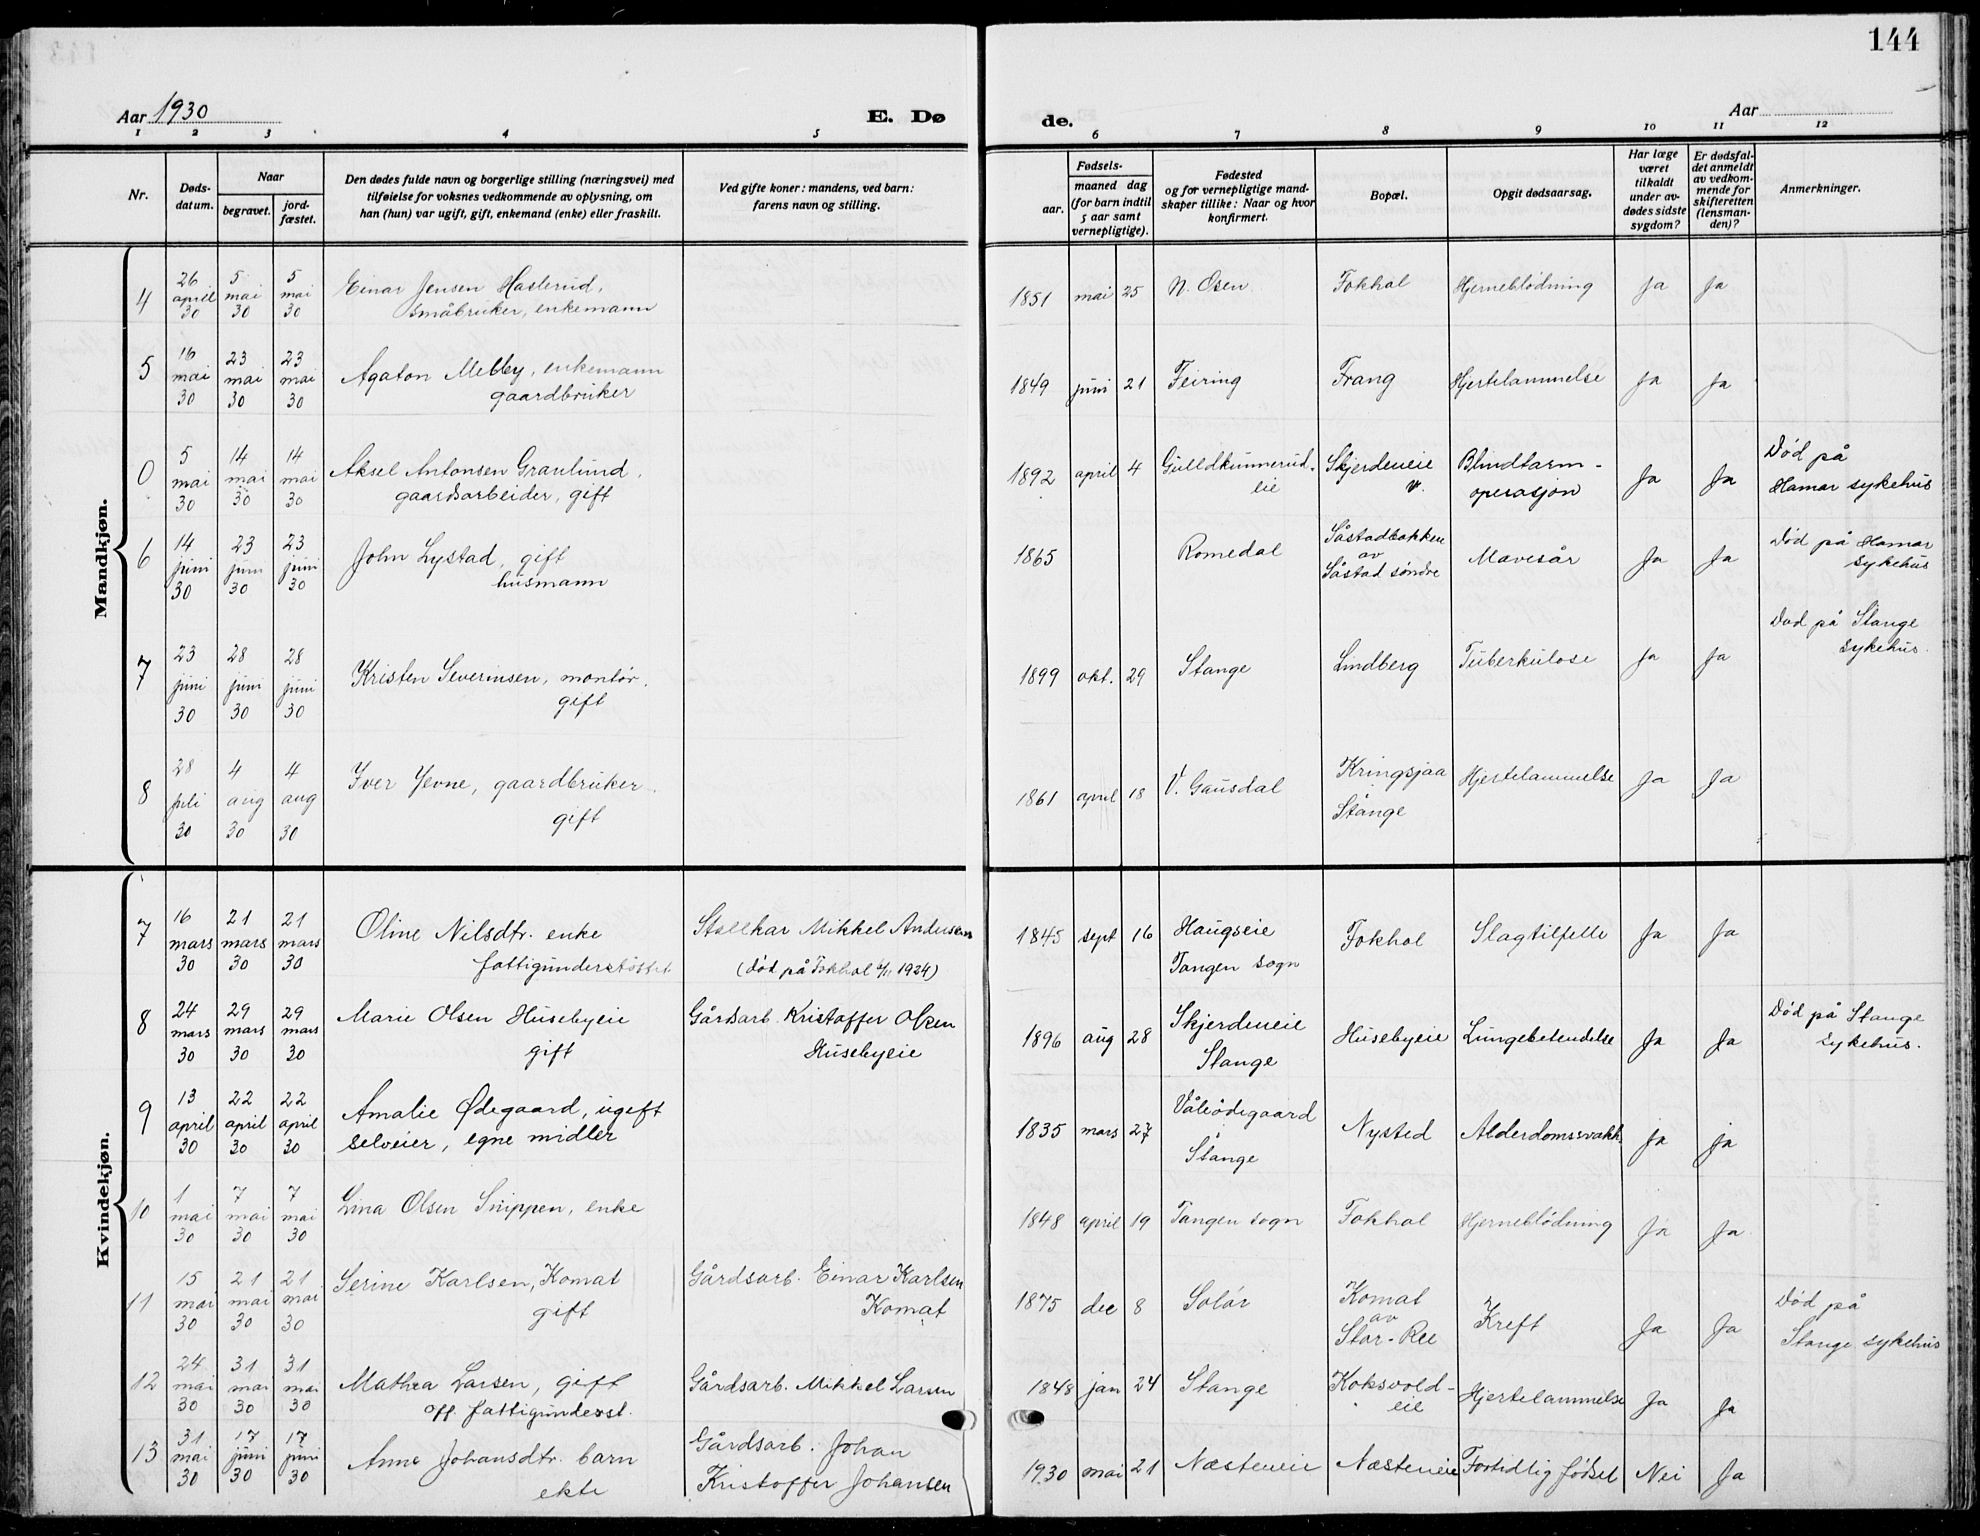 144
Aar 1930
E. Dø
de.
Aar
1 2 3 4 5 6 7 8 9 10 11 12
Nr.
Døds-
datum.
Naar
begravet.
jord-
fæstet.
Den dødes fulde navn og borgerlige stilling (næringsvei) med
tilføielse for voksnes vedkommende av oplysning, om
han (hun) var ugift, gift, enkemand (enke) eller fraskilt.
Ved gifte koner: mandens, ved barn:
farens navn og stilling.
Fødsels-
aar.
maaned dag
(for barn indtil
5 aar samt
vernepligtige).
Fødested
og for vernepligtige mand-
skaper tillike: Naar og hvor
konfirmert.
Bopæl.
Opgit dødsaarsag.
Har læge
været
tilkaldt
under av-
dødes sidste
sygdom?
Er dødsfal-
det anmeldt
av vedkom-
mende for
skifteretten
(lensman-
den)?
Anmerkninger.
Mandkjøn.
4 26 april 30 5 mai 30 5 mai 30
Einar Jensen Haslerud,
småbruker, enkemann
1851 mai 25 N. Osen Fokhol Hjerneblödning Ja Ja
5 16 mai 30 23 mai 30 23 mai 30
Agaton Melby, enkemann
gaardbruker
1849 juni 21 Feiring Frang Hjertelammelse Ja Ja
0 5 mai 30 14 mai 30 14 mai 30
Aksel Antonsen Granlund,
gaardsarbeider, gift
1892 april 4 Gulldkunnerud-
eie
Skjerdeneie
v.
Blindtarm-
operasjon
Ja Ja
Död på
Hamar sykehus
6 14 juni 30 23 juni 30 23 juni 30
John Lystad, gift
husmann
1865 Romedal
Såstadbakken
av
Såstad söndre
Mavesår Ja Ja
Död på Hamar
sykehus
7 23 juni 30 28 juni 30 28 juni 30
Kristen Severinsen, montör.
gift
1899 okt. 29 Stange Lindberg Tuberkulose Ja Ja
Död på Stange
sykehus.
8 28 juli 30 4 aug 30 4 aug 30
Iver Jevne, gaardbruker.
gift
1861 april 18 V. Gausdal
Kringsjaa
Stange
Hjertelammelse Ja Ja
Kvindekjøn.
7 16 mars 30 21 mars 30 21 mars 30
Oline Nilsdtr. enke
fattigunderstöttet
Stallkar Mikkel Andersen
(död på Fokhol 1924)
1845 sept 16
Haugseie
Tangen sogn
Fokhol Slagtilfelle Ja Ja
8 24 mars 30 29 mars 30 29 mars 30
Marie Olsen Husebyeie
gift
Gårdsarb. Kristoffer Olsen
Husebyeie
1896 aug 28
Skjerdeneie
Stange
Husebyeie Lungebetendelse Ja Ja
Död på Stange
sykehus.
9 13 april 30 22 april 30 22 april 30
Amalie Ødegaard, ugift
selveier, egne midler
1835 mars 27
Våleödegaard
Stange
Nysted Alderdomssvakh. Ja ja
10 1 mai 30 7 mai 30 7 mai 30
Lina Olsen Snippen, enke
1848 april 19 Tangen sogn Fokhol Hjerneblödning Ja Ja
11 15 mai 30 21 mai 30 21 mai 30
Serine Karlsen, Komat
gift
Gårdsarb. Einar Karlsen
Komat
1875 dec 8 Solör
Komat
av
Stor-Ree
Kreft Ja Ja
Död på
Stange sykehus
12 24 mai 30 31 mai 30 31 mai 30
Mathea Larsen, gift
off. fattigunderst.
Gårdsarb. Mikkel Larsen
1848 jan 24 Stange
Koksvold-
eie
Hjertelammelse Ja Ja
13 31 mai 30 17 juni 30 17 juni 30
Anne Johansdtr. barn
ekte
Gårdsarb. Johan
Kristoffer Johansen
1930 mai 21 Næsteneie Næsteneie Fortidlig födsel Nei Ja